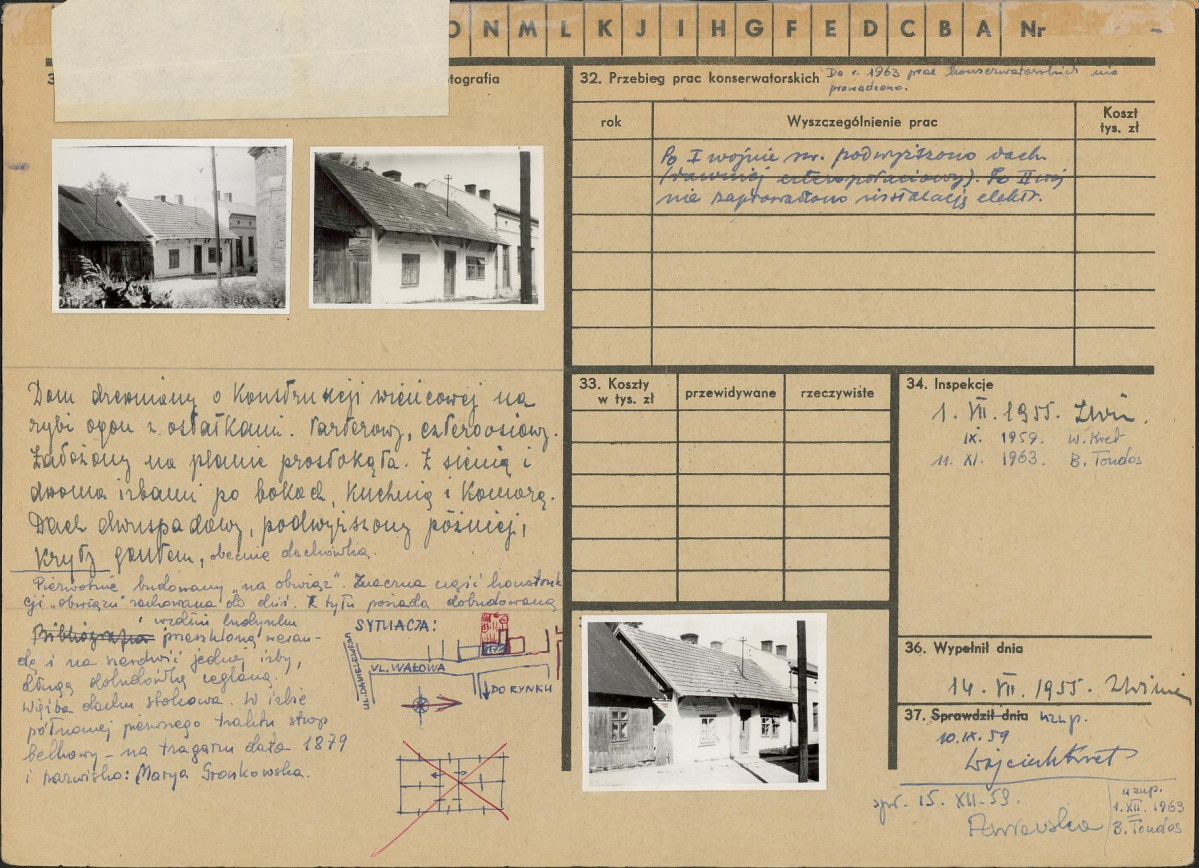 O N M L K J I H G F E D C B A Nr
3
tografia
32. Przebieg prac konserwatorskich Do r. 1963 prac konserwatorskich nie
prowadzono.
rok
Wyszczególnienie prac
Koszt
tys. zł
Po I wojnie św. podwyższono dach
(dawniej czteropołaciowy). Po II woj
nie zaprowadzono instalację elektr.
Dom drewniany o konstrukcji wieńcowej na
rybi ogon z ostatkami. Parterowy, czteroosiowy.
Założony na planie prostokąta. Z sienią i
dwoma izbami po bokach, kuchnią i komorą.
Dach dwuspadowy, podwyższony później,
kryty gontem, obecnie dachówką.
Pierwotnie budowany „na obwiąz". Znaczna część konstruk
cji „obwiązu" zachowana do dziś. Z tyłu posiada dobudowaną
wzdłuż budynku
Bibliografia przeszkloną weran-
dę i na szerokość jednej izby,
długą dobudówkę ceglaną.
Więźba dachu stolcowa. W izbie
północnej pierwszego traktu strop
belkowy – na tragarzu data 1879
i nazwisko: Marya Gronkowska.
SYTUACJA:
UL. WAŁOWA
DO RYNKU
33. Koszty
w tys. zł
przewidywane
rzeczywiste
34. Inspekcje
1. VII. 1955.
IX. 1959. W. Kret
11. XI. 1963. B. Tondos
36. Wypełnił dnia
14. VII. 1955.
37. Sprawdził dnia uzup.
10.IX.59
Wojciech Kret
spr. 15. XII. 59.
uzup.
1.XII.1963
B. Tondos